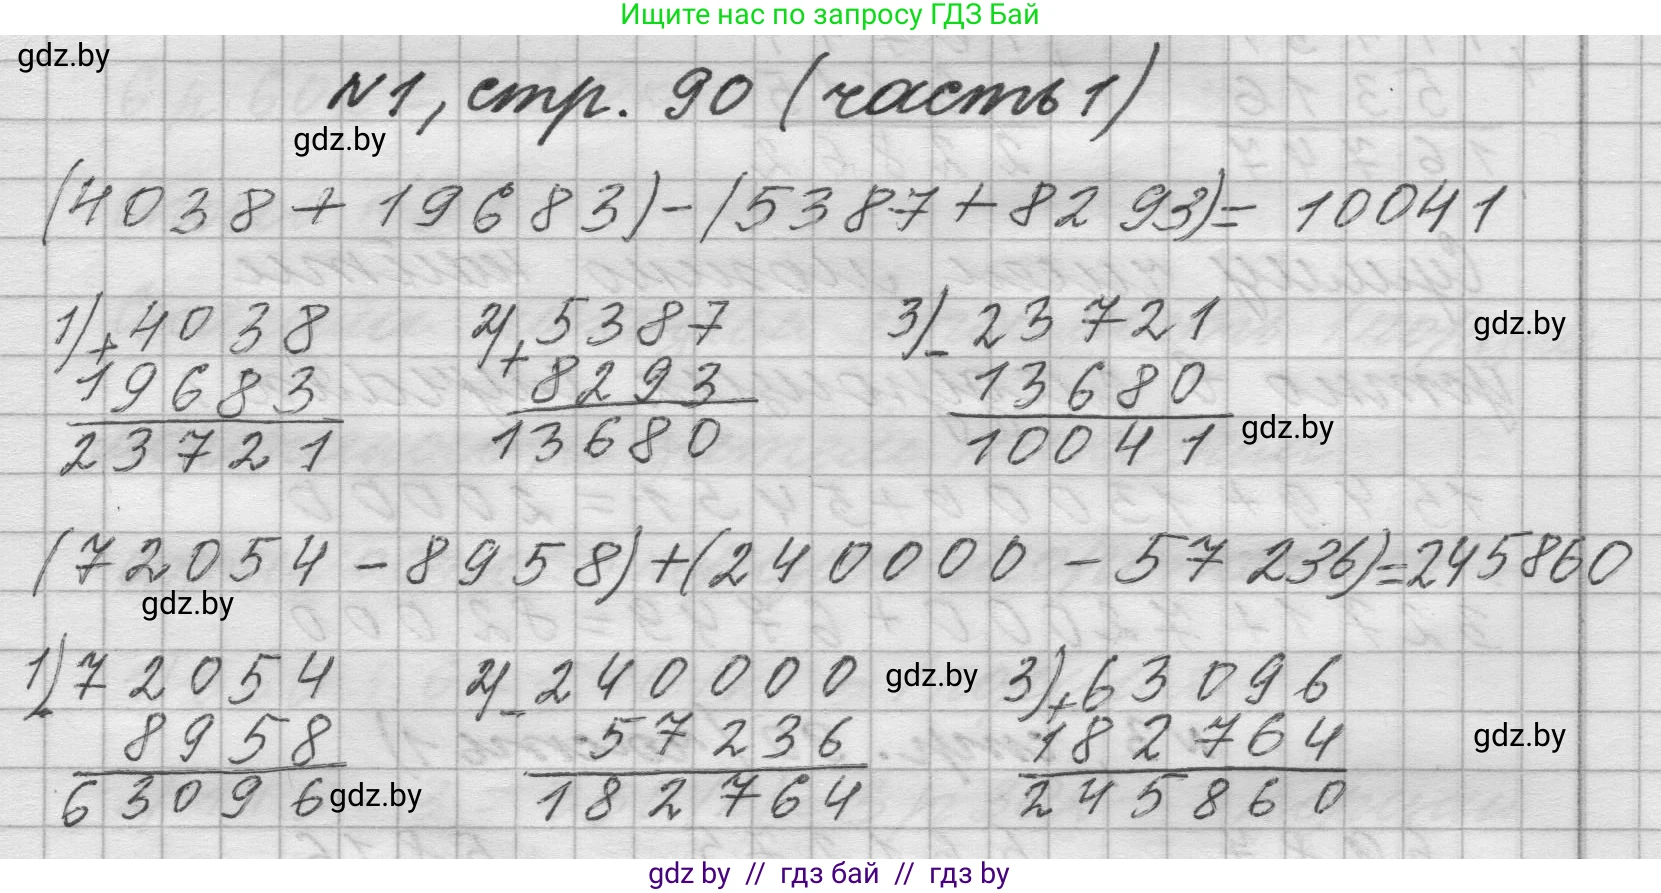 Ищите нас по запросу ГДЗ Бай
gdz.by
№1, стр. 90 (часть 1)
gdz.by
(4038 + 19683) - (5387 + 8293) = 10041
1) + 4038 2) + 5387 3) - 23721
gdz.by
19683 8293 13680
gdz.by
23721 13680 10041
(72054 - 8958) + (240000 - 57236) = 245860
gdz.by
1) - 72054 2) - 240000 3) + 63096
gdz.by
8958 57236 182764
gdz.by
63096 182764 245860
gdz.by
gdz by // гдз бай // гдз by